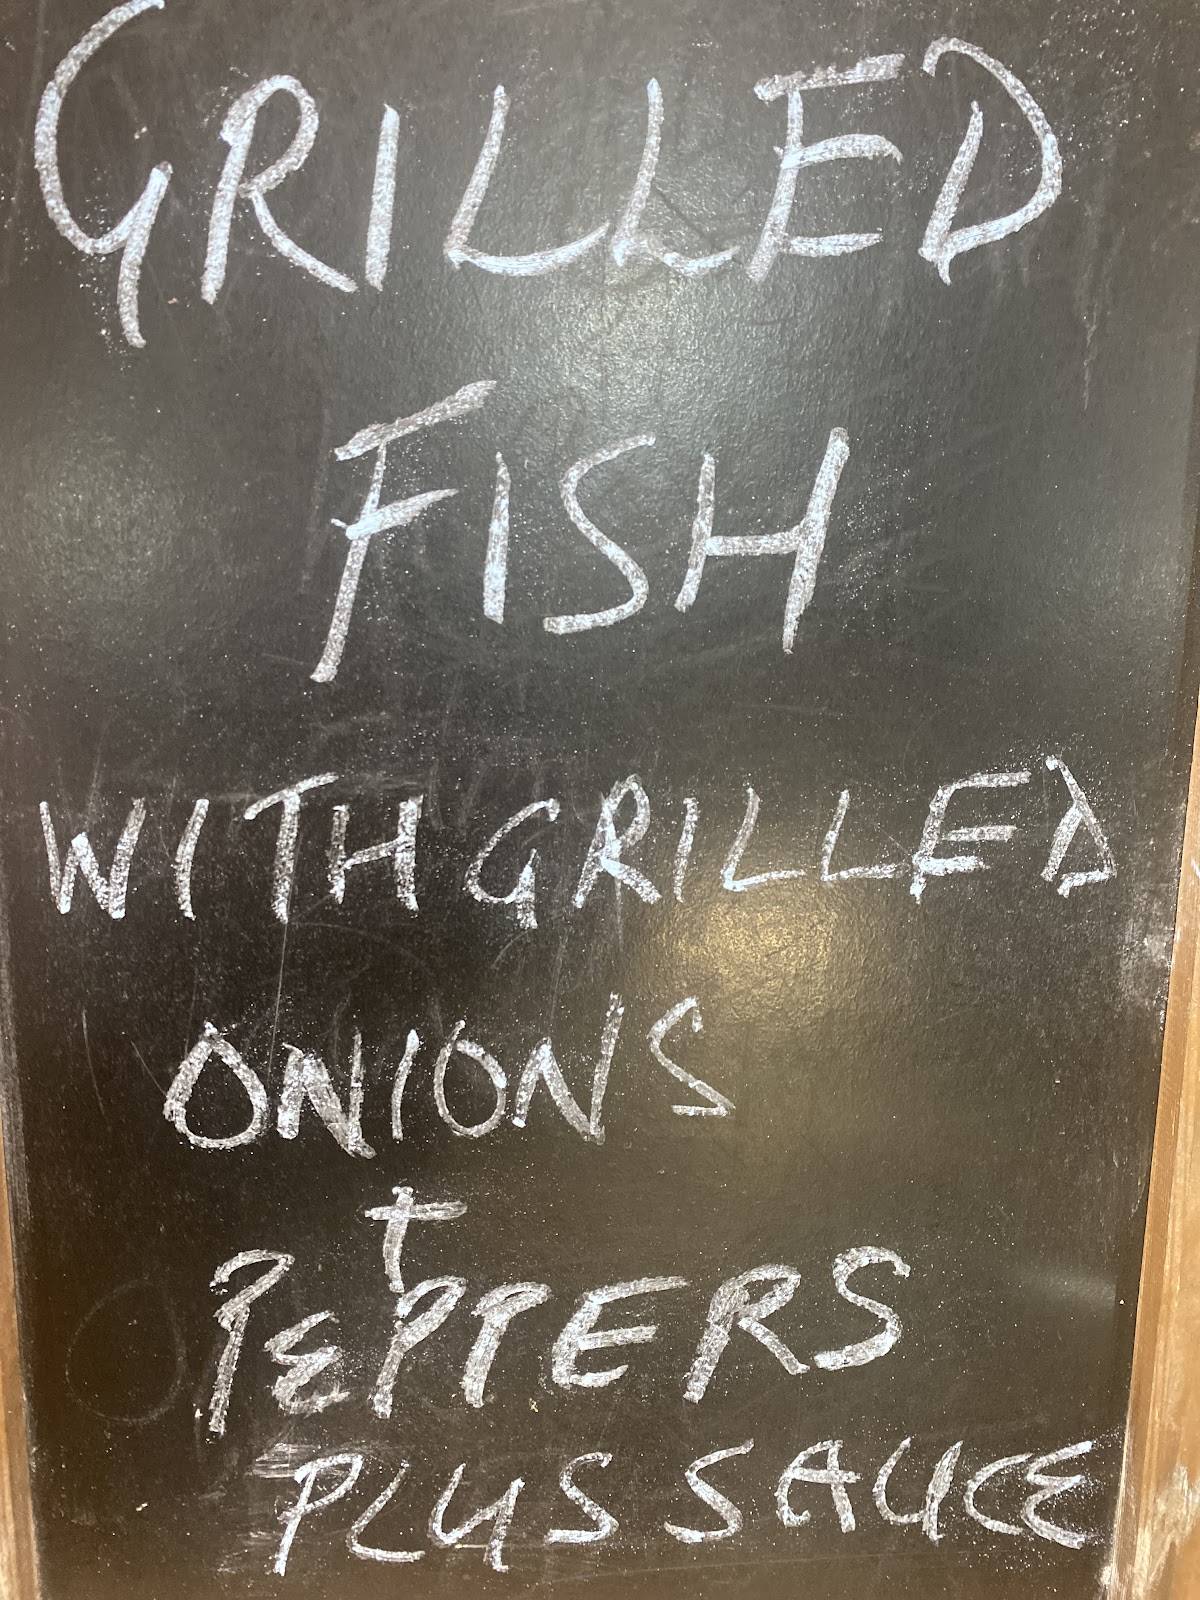 GRILLED
FISH
WITH GRILLED
ONIONS
+
PEPPERS
PLUS SAUCE